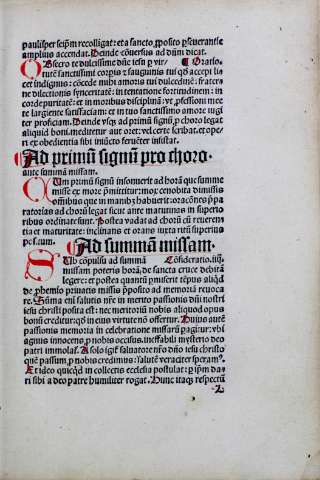 paulisper seipm̄ recolligat: et a sancto ꝓposito ꝑseverantie
amplius accendat. Deinde cōuersus ad dūm dicat.
OBsecro te dulcissime dn̄e iesu ꝑ vir⸗ ¶ Oratio.
tutē sanctissimi corꝑis ⁊ sanguinis tui qd̄ accepi lic
et indignus: cōcede mihi amoris tui dulcedinē: frater
ne dilectionis synceritatē: in tentatione fortitudinem: in
corde puritatē: et in moribus disciplinā: vt ꝓfessioni mee
te largiente satisfaciam: et in tuo sanctissimo amore iugi
ter proficiam. Deinde vsqꝫ ad primū signū ꝓ choro legat
aliquid boni. meditetur aut oret: vel certe scribat. et ope⸗
ri ex obedientia sibi iniūcto feruēter insistat.
¶ Ad primū signū pro choro.
ante summā missam.
CUm primū signū insonuerit ad horā que summe
misse ex more p̄mittitur: mox cenobita dimissis
omnibus que in manibꝫ habuerit: oracōnes p̄pa
ratorias ad chorū legat sicut ante matutinas in superio
ribus ordinate sunt. Postea vadat ad chorū cū reueren
tia et maturitate: inclinans et orans iuxta ritū superius
positum.
¶ Ad summā missam.
SUb cōpulsu ad summā ¶ Cōsideratio. iiij.
missam poteris horā. de sancta cruce debitā
legere: et postea quantū ꝑmiserit tēpus aliqd
de phemio priuatis missis ꝓposito ad memoriā reuoca
re. Sūma eni salutis nr̄e in merito passionis dn̄i nostri
iesu christi posita est: nec meritoriū nobis aliquod opus
bonū creditur: qd in eius virtute nō offertur. Huius autē
passionis memoria in celebratione missarū ꝑagitur: vbi
agnus innocens ꝓ nobis occisus. ineffabili mysterio deo
patri immolat̄. A solo igit̄ saluatore nr̄o dn̄o iesu christo
que passum ꝓ nobis credimus: salutē veraciter speram⁹.
Et ideo quicqd in collectis ecclesia postulat: ꝑ ip̄m da⸗
ri sibi a deo patre humiliter rogat. Hunc itaqꝫ respectū